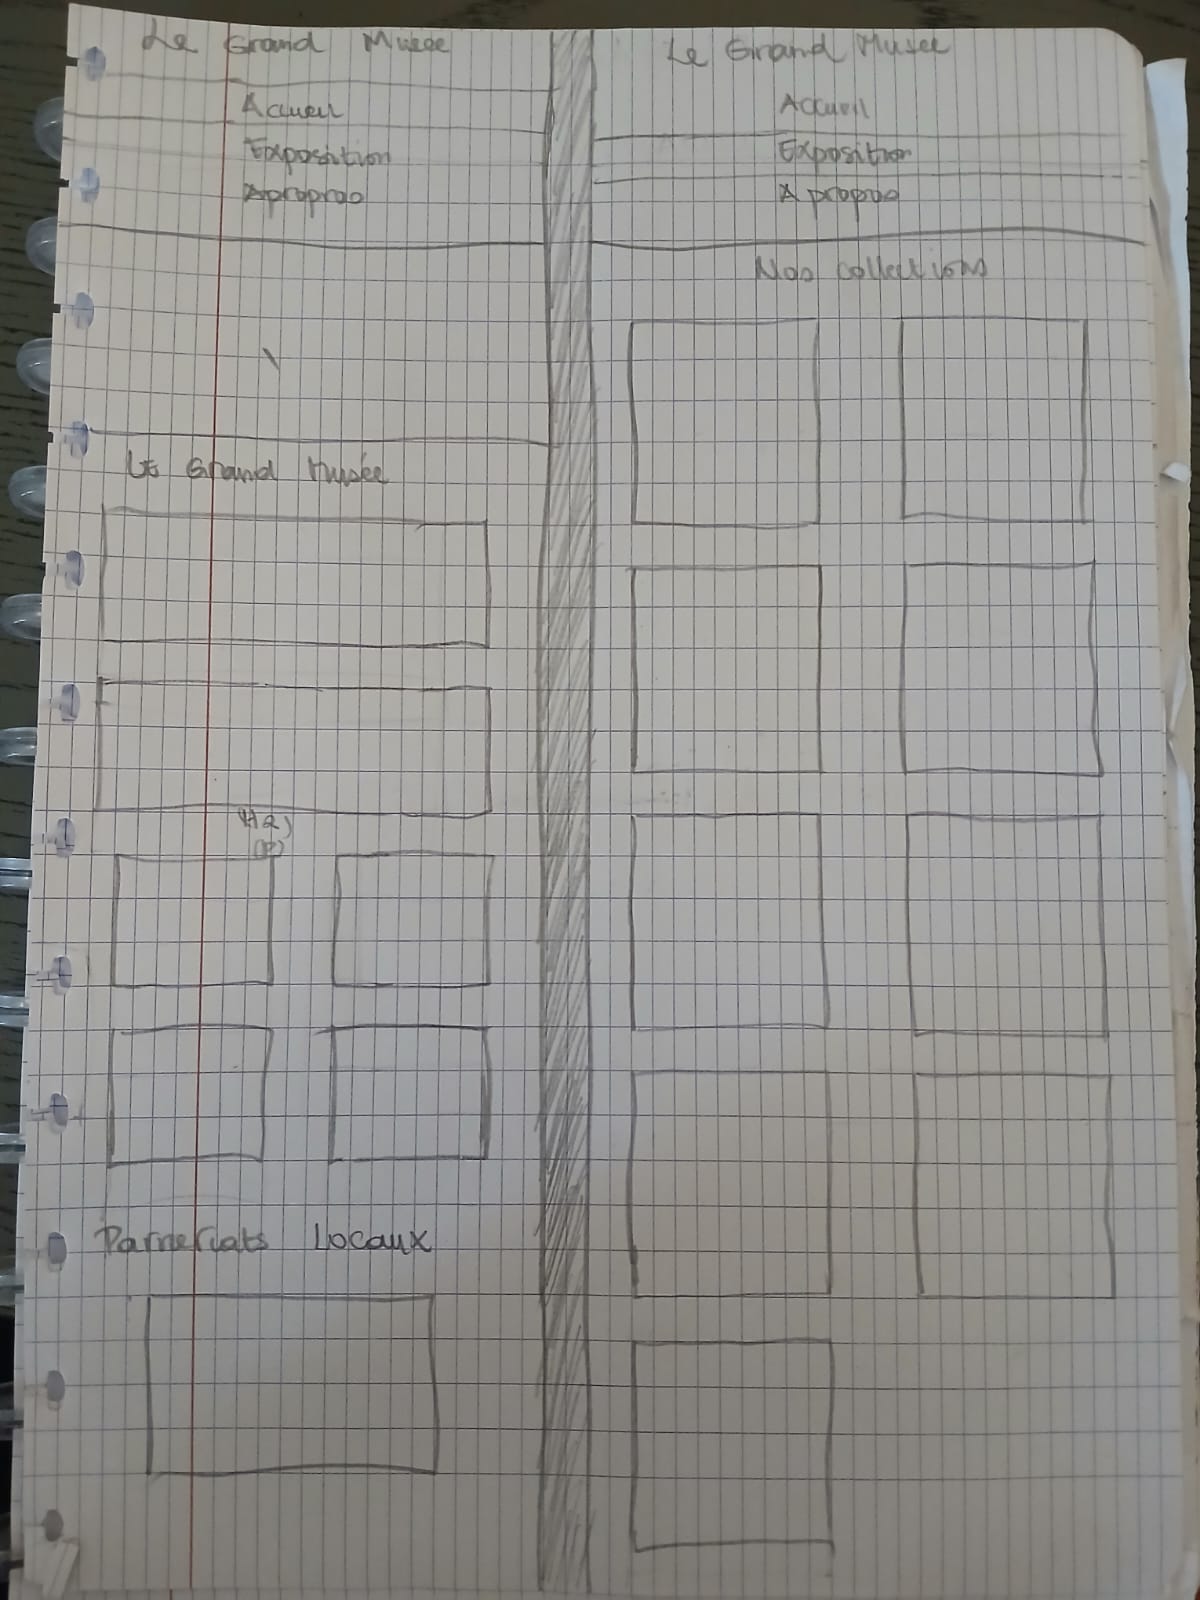 Le Grand Musee
Accueil
Exposition
Apropros
Le Grand Musée
(H2)
(P)
Parneriats Locaux
Le Grand Musee
Accueil
Exposition
A propos
Nos collections